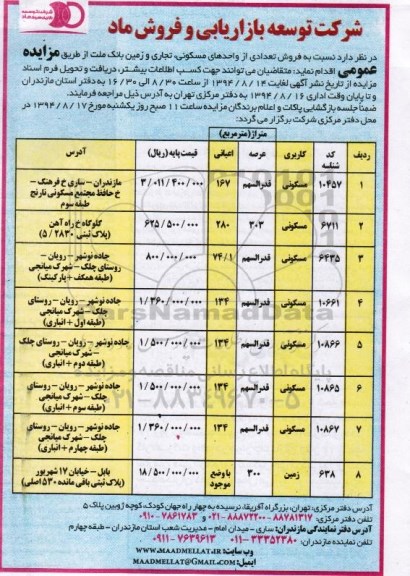 شرکت توسعه بازاریابی و فروش ماد
در نظر دارد نسبت به فروش تعدادی از واحدهای مسکونی، تجاری و زمین بانک ملت از طریق مزایده
عمومی اقدام نماید؛ متقاضیان می توانند جهت کسب اطلاعات بیشتر، دریافت و تحویل فرم اسناد
مزایده از تاریخ نشر آگهی لغایت ۱۳۹۴/۸/۱۴ از ساعت ۸/۳۰ الی ۱۶/۳۰ به دفتر استان مازندران
و تا پایان وقت اداری ۱۳۹۴/۸/۱۶ به دفتر مرکزی تهران به آدرس ذیل مراجعه فرمایند.
ضمناً جلسه بازگشایی پاکات و اعلام برندگان مزایده ساعت ۱۱ صبح روز یکشنبه مورخ ۱۳۹۴/۸/۱۷ در
محل دفتر مرکزی شرکت برگزار می گردد:
ردیف کد شناسه کاربری متراژ(مترمربع) عرصه اعیانی قیمت پایه (ریال) آدرس
۱ ۱۰۴۵۷ مسکونی قدرالسهم ۱۶۷ ۳/۰۱۱/۴۰۰/۰۰۰ مازندران – ساری خ فرهنگ – خ حافظ مجتمع مسکونی نارنج طبقه سوم
۲ ۶۷۱۱ مسکونی ۳۰۳ ۲۸۰ ۶۲۵/۵۰۰/۰۰۰ گلوگاه خ راه آهن (پلاک ثبتی ۲۸۳۰/۵)
۳ ۶۴۳۵ مسکونی قدرالسهم ۷۴/۱ ۸۰۰/۰۰۰/۰۰۰ جاده نوشهر – رویان – روستای چلک – شهرک میانجی (طبقه همکف + پارکینگ)
۴ ۱۰۶۶۱ مسکونی قدرالسهم ۱۳۴ ۱/۳۶۰/۰۰۰/۰۰۰ جاده نوشهر – رویان – روستای چلک – شهرک میانجی (طبقه اول + انباری)
۵ ۱۰۸۶۶ مسکونی قدرالسهم ۱۳۴ ۱/۵۰۰/۰۰۰/۰۰۰ جاده نوشهر – رویان – روستای چلک – شهرک میانجی (طبقه دوم + انباری)
۶ ۱۰۸۶۵ مسکونی قدرالسهم ۱۳۴ ۱/۵۰۰/۰۰۰/۰۰۰ جاده نوشهر – رویان – روستای چلک – شهرک میانجی (طبقه سوم + انباری)
۷ ۱۰۸۶۷ مسکونی قدرالسهم ۱۳۴ ۱/۳۶۰/۰۰۰/۰۰۰ جاده نوشهر – رویان – روستای چلک – شهرک میانجی (طبقه چهارم + انباری)
۸ ۶۳۸ زمین ۳۰۰ با وضع موجود ۱۸/۵۰۰/۰۰۰/۰۰۰ بابل – خیابان ۱۷ شهریور (پلاک ثبتی باقی مانده ۵۳۰ اصلی)
آدرس دفتر مرکزی: تهران، بزرگراه آفریقا، نرسیده به چهار راه جهان کودک، کوچه ژوبین پلاک ۵
تلفن دفتر مرکزی: ۸۸۷۸۱۳۱۷ – ۸۸۸۷۲۲۰۰-۰۲۱ و ۷۸۶۱۷۸۳-۰۹۱۰
آدرس دفتر نمایندگی مازندران: ساری – میدان امام – مدیریت شعب استان مازندران – طبقه چهارم
تلفن نماینده مازندران: ۳۳۳۵۲۳۸۰-۰۱۱ ۷۶۳۹۶۱۳-۰۹۱۱
وب سایت: www.MAADMELLAT.IR
ایمیل: MAADMELLAT@GMAIL.COM